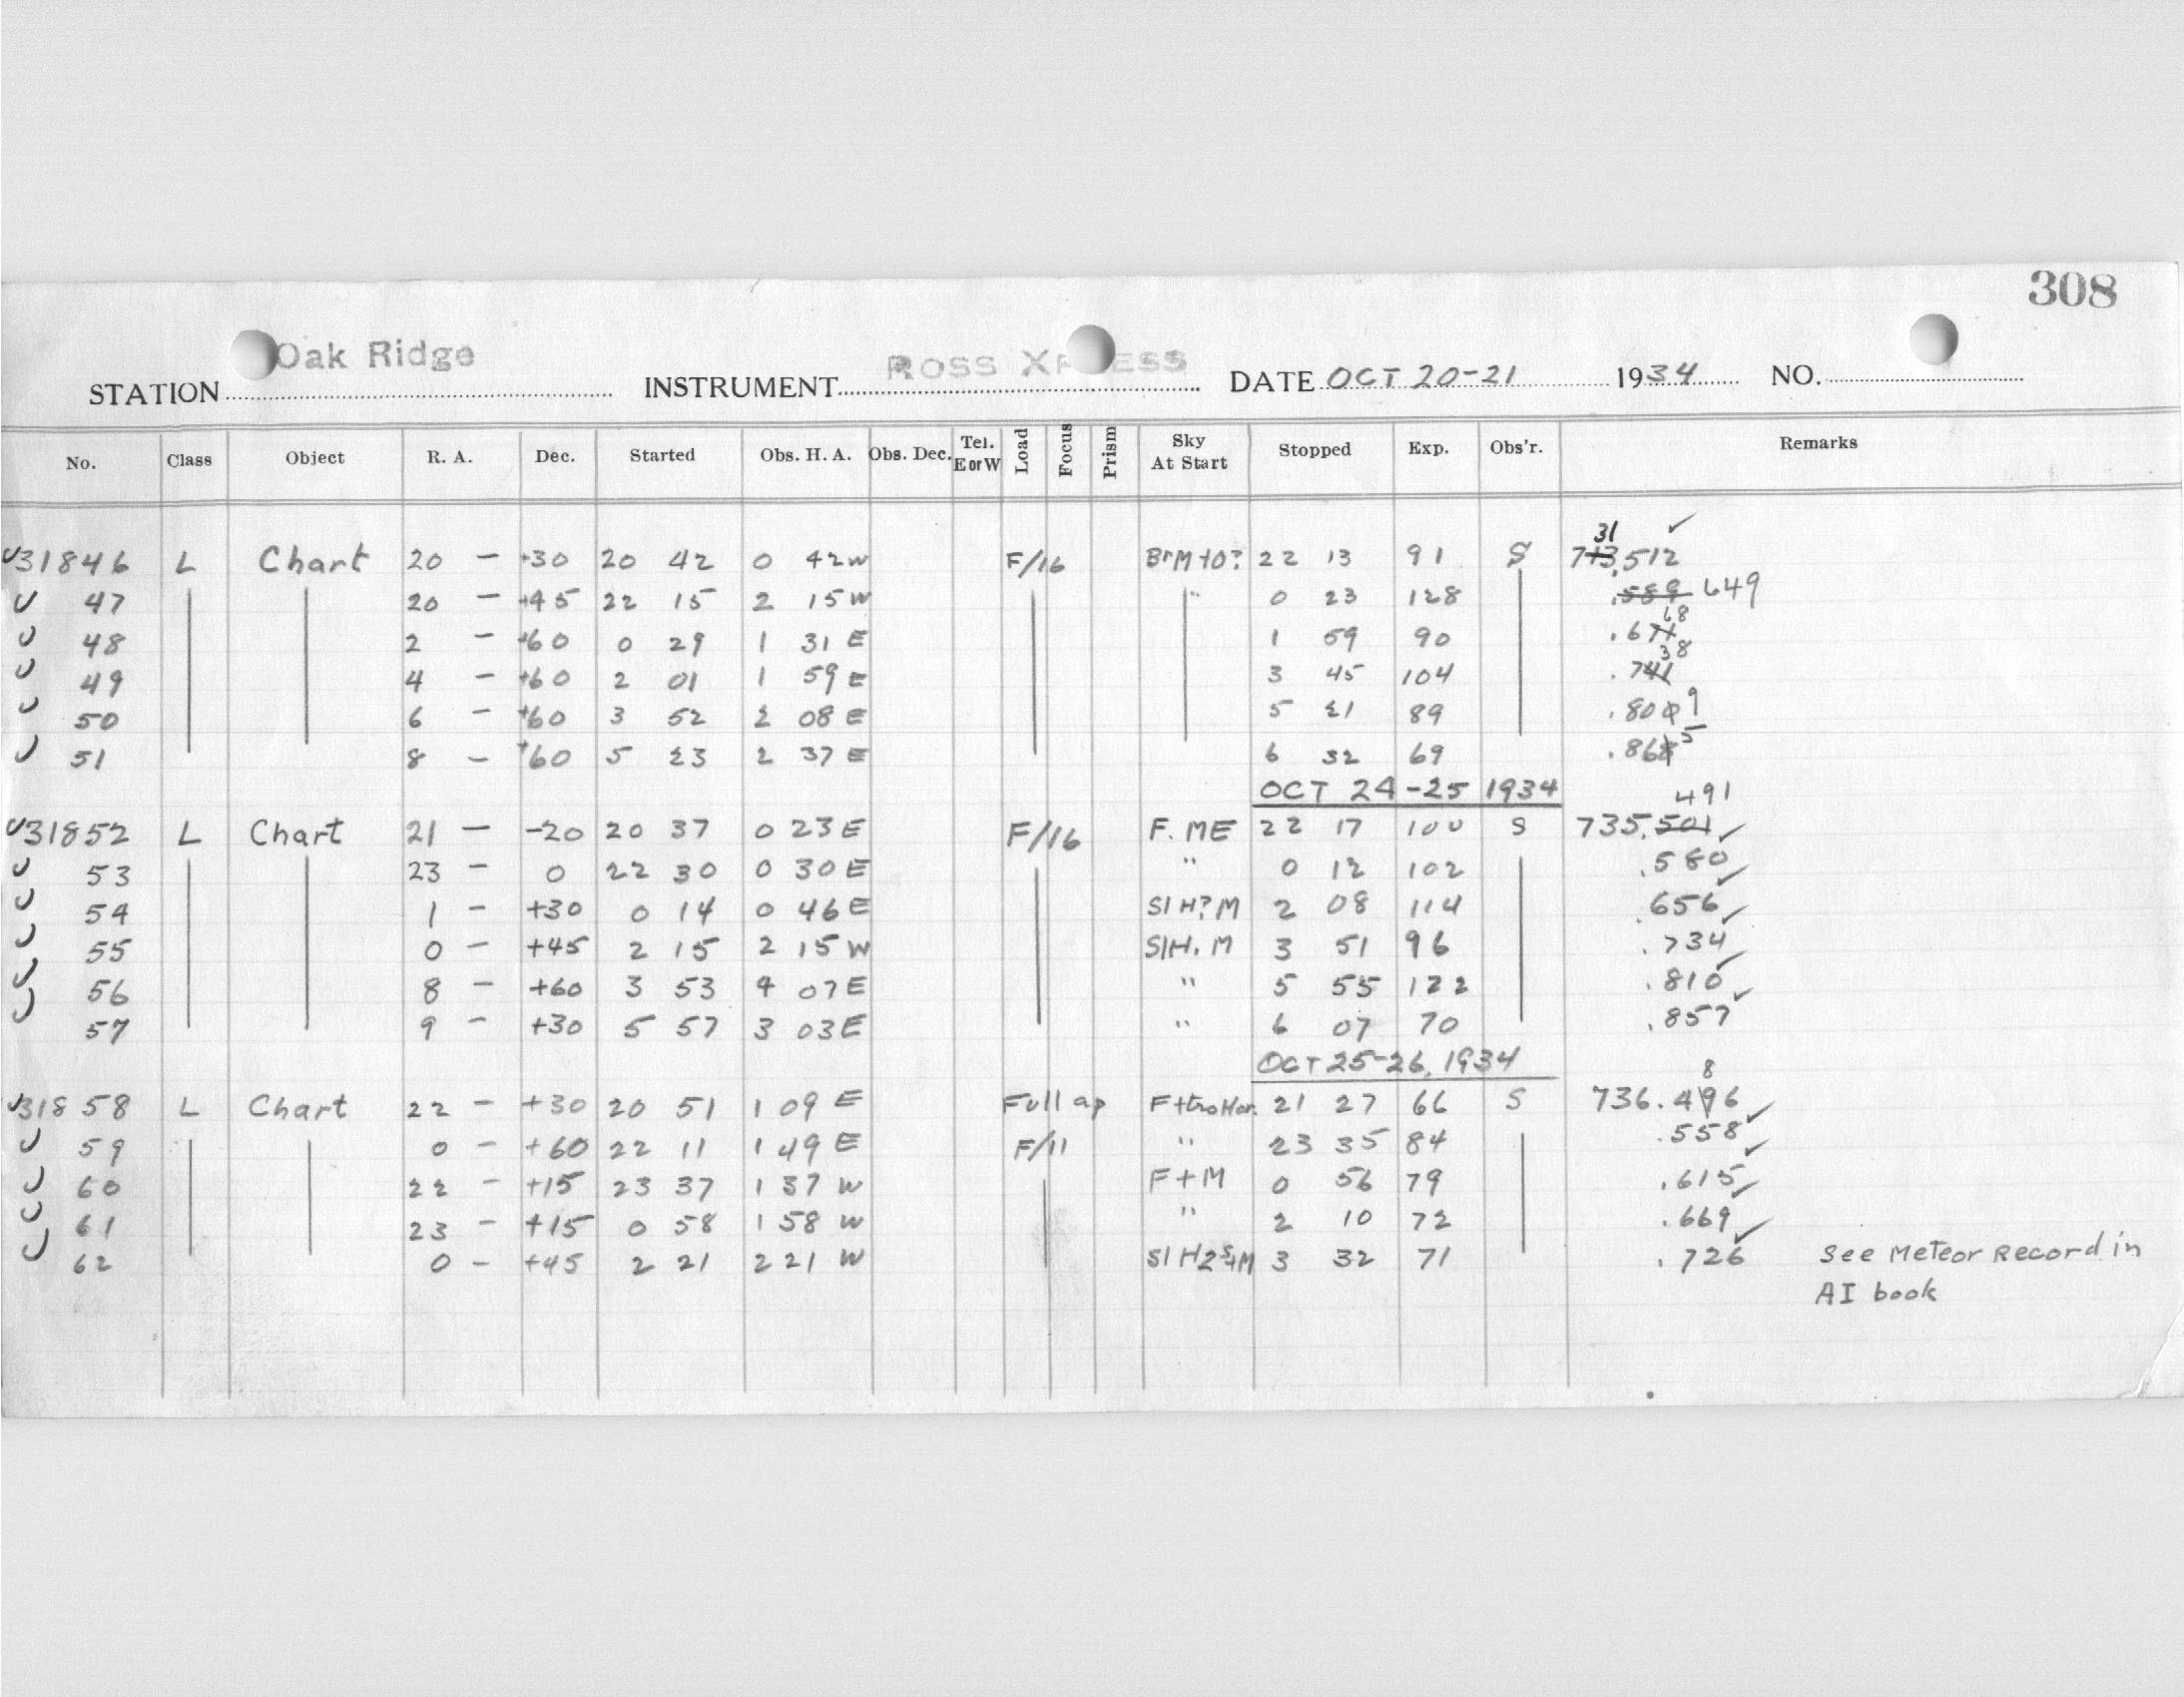 308
STATION Oak Ridge INSTRUMENT ROSS XPRESS DATE OCT 20-21 1934 NO.
No. Class Object R. A. Dec. Started Obs. H. A. Obs. Dec. Tel. E or W Load Focus Prism Sky At Start Stopped Exp. Obs'r. Remarks
31
31846 L Chart 20 - +30 20 42 0 42 W F/16 BrM+O? 22 13 91 S 713.512 ✓
47 20 - +45 22 15 2 15 W " 0 23 128 .589 649
68
48 2 - +60 0 29 1 31 E 1 59 90 .671
38
49 4 - +60 2 01 1 59 E 3 45 104 .741
50 6 - +60 3 52 2 08 E 5 21 89 .80 9
51 8 - +60 5 23 2 37 E 6 32 69 .868 5
OCT 24-25 1934
491
31852 L Chart 21 - -20 20 37 0 23 E F/16 F. ME 22 17 100 S 735.501 ✓
53 23 - 0 22 30 0 30 E " 0 12 102 .580 ✓
54 1 - +30 0 14 0 46 E Sl H? M 2 08 114 .656 ✓
55 0 - +45 2 15 2 15 W Sl H. M 3 51 96 .734 ✓
56 8 - +60 3 53 4 07 E " 5 55 122 .810 ✓
57 9 - +30 5 57 3 03 E " 6 07 70 .857 ✓
OCT 25-26, 1934
8
31858 L Chart 22 - +30 20 51 1 09 E Full ap 21 27 66 S 736.496 ✓
59 0 - +60 22 11 1 49 E F/11 " 23 35 84 .558 ✓
60 22 - +15 23 37 1 37 W F+M 0 56 79 .615 ✓
61 23 - +15 0 58 1 58 W " 2 10 72 .669 ✓
62 0 - +45 2 21 2 21 W Sl H 3 32 71 .726 See Meteor Record in
AI book